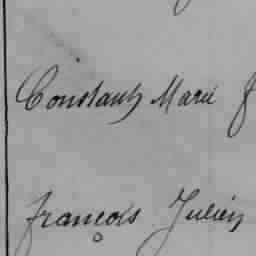 Constant Marie
françois Julien